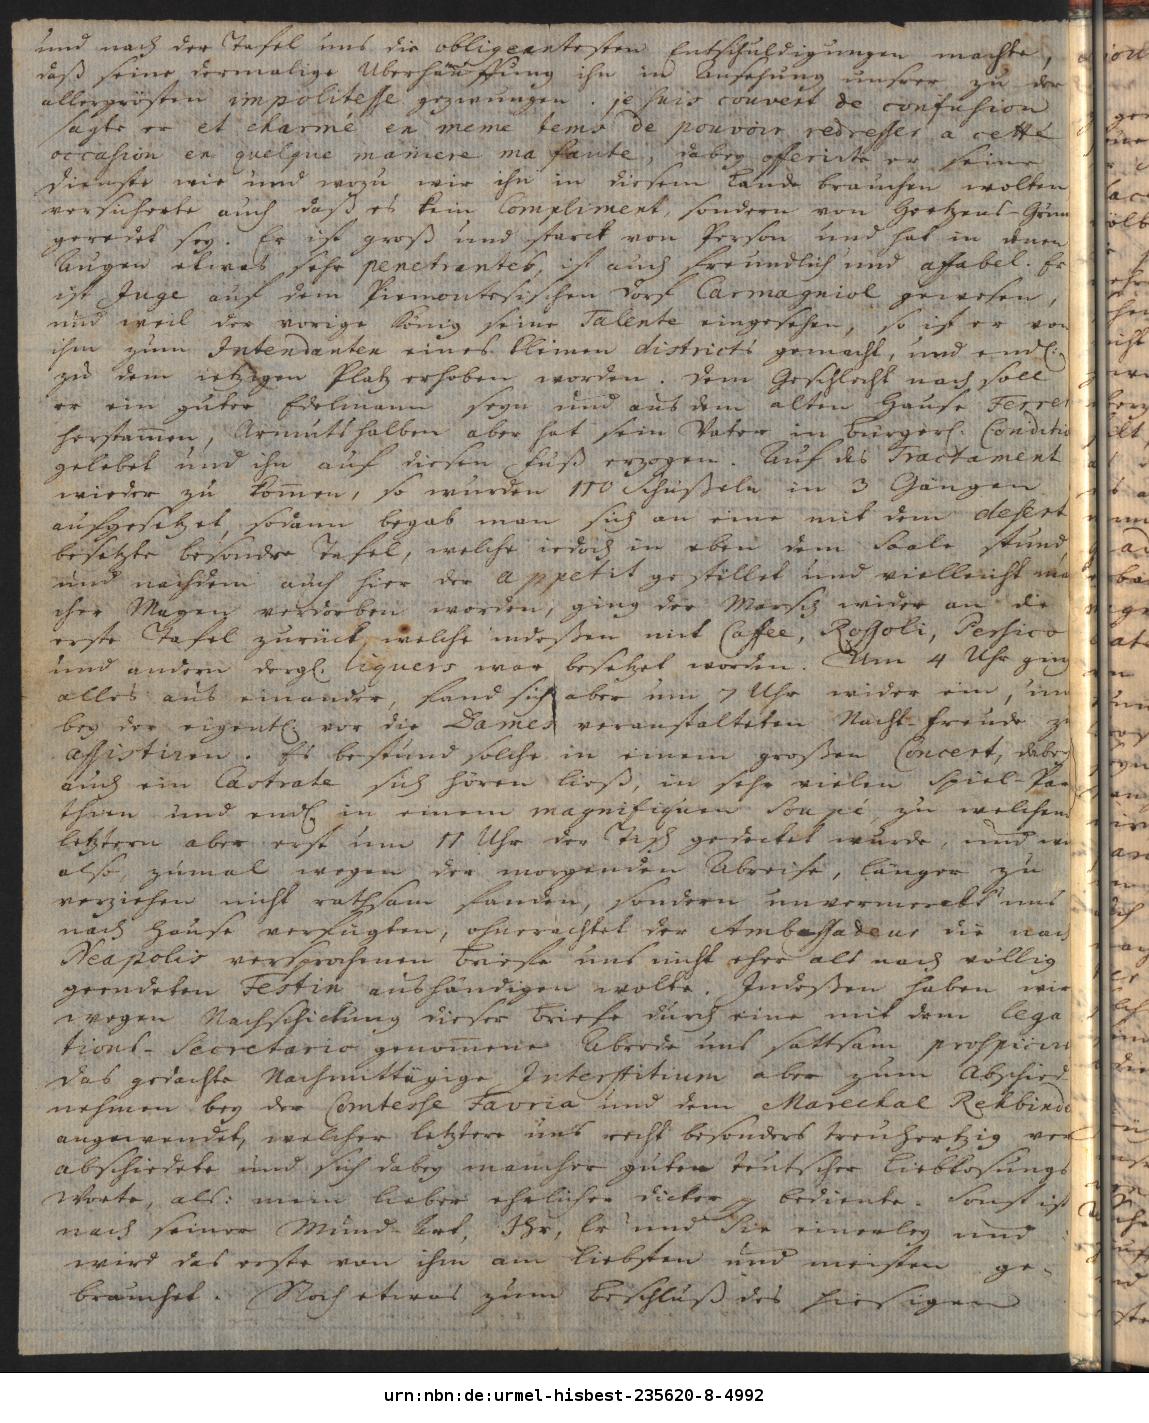 und nach der Tafel uns die obligeantesten Entschuldigungen machte,
daß seine dermalige Uberhäuffung ihn in Ansehung unsrer zu der
allergrösten impolitesse gezwungen. je suis couvert de confusion
sagte er et charmé en meme tems de pouvoir redresser a cette
occasion en quelque maniere ma faute, dabey offerirte er seine
Dienste wie und wozu wir ihn in diesem Lande brauchen wolten
versicherte auch daß es kein Compliment, sondern von Hertzens-Grund
geredet sey. Er ist groß und starck von Person und hat in denen
Augen etwas sehr penetrantes, ist auch freundlich und affabel. Er
ist Juge auf dem Piemontesischen Dorf Carmagniol gewesen,
und weil der vorige König seine Talente eingesehen, so ist er von
ihm zum Intendanten eines kleinen districts gemacht, und endl.
zu dem ietzigen Platz erhoben worden. Dem Geschlecht nach soll
er ein guter Edelmann seyn und aus dem alten Hause Ferrer
herstam̅en, Armuts halben aber hat sein Vater in bürgerl. Conditio
gelebet und ihn auf diesen Fuß erzogen. Auf das Tractament
wieder zu kom̅en, so wurden 110 Schüßeln in 3 Gängen
aufgesetzet, sodann begab man sich an eine mit dem desert
besetzte besondre Tafel, welche iedoch in eben dem Saale stund,
und nachdem auch hier der appetit gestillet und vielleicht man
cher Magen verdorben worden, ging der Marsch wider an die
erste Tafel zurück, welche indeßen mit Caffee, Rossoli, Persico
und andern dergl. liqueurs war besetzet worden. Um 4 Uhr ging
alles aus einander, fand sich aber um 7 Uhr wider ein, um
bey der eigentl. vor die Dames veranstalteten Nacht-Freude zu
assistiren. Es bestund solche in einem großen Concert, dabey
auch ein Castrate sich hören ließ, in sehr vielen Spiel-Par
thien und endl. in einem magnifiquen Soupé, zu welchem
letztern aber erst um 11 Uhr der Tisch gedecket wurde, und wir
also, zumal wegen der morgenden Abreise, länger zu
verziehen nicht rathsam fanden, sondern unvermerckt uns
nach Hause verfügten, ohnerachtet der Ambassadeur die nach
Neapolis versprochenen Briefe uns nicht eher als nach völlig
geendeten Festin aushändigen wolte. Indeßen haben wir
wegen Nachschickung dieser Briefe durch eine mit dem lega
tions-Secretario genom̅ene Abrede uns sattsam prospiciret
das gedachte Nachmittägige Interstitium aber zum Abschied
nehmen bey der Comtesse Favria und dem Marechal Rehbinder
angewendet, welcher letztere uns recht besonders treuhertzig ver
abschiedete und sich dabey mancher guten teutscher Liebkosungs
Worte, als: mein lieber ehrlicher dicker bediente. Sonst ist
nach seiner Mund-Art, Ihr, Er und Sie einerley und
wird das erste von ihm am liebsten und meisten ge-
brauchet. Noch etwas zum Beschluß des hiesigen
urn:nbn:de:urmel-hisbest-235620-8-4992